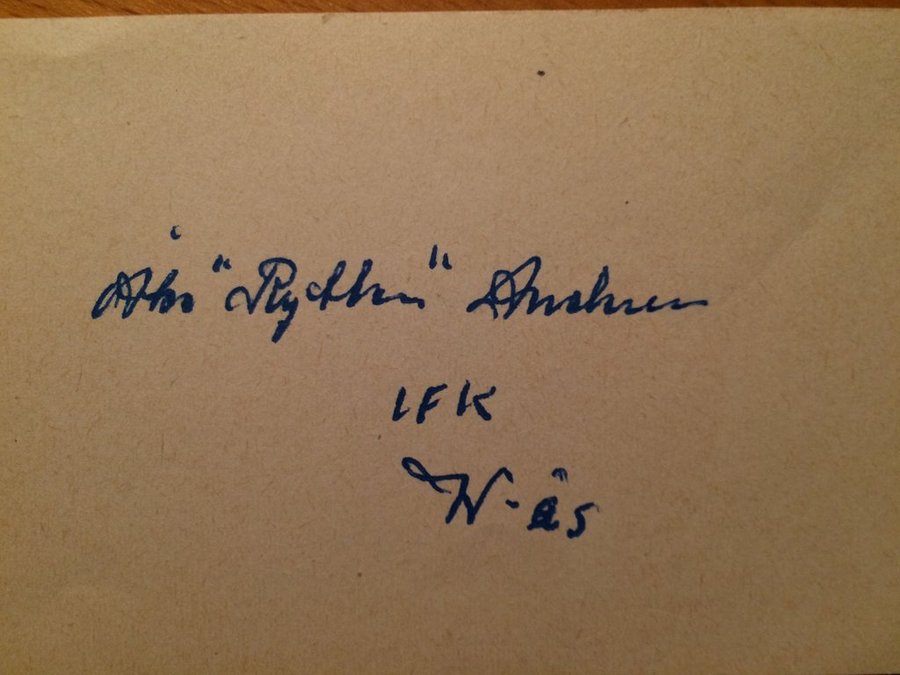 Åke Andersson
IFK
W-ås